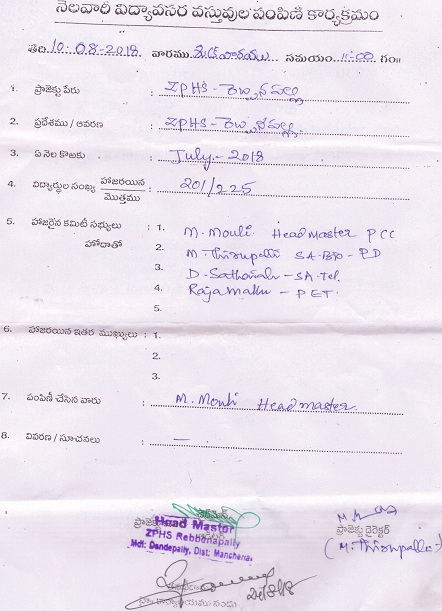 నెలవారీ విద్యావసర వస్తువుల పంపిణి కార్యక్రమం
తేది.10-08-2018. వారము శుక్రవారము సమయం..11:00 గం॥
1. ప్రాజెక్టు పేరు : ZPHS - రెబ్బనపల్లి
2. ప్రదేశము / ఆవరణ : ZPHS - రెబ్బనపల్లి
3. ఏ నెల కొఱకు : July - 2018
4. విద్యార్థుల సంఖ్య హాజరయిన / మొత్తము : 201/225
5. హాజరైన కమిటీ సభ్యులు : 1. M. Mouli. Head Master PCC
హోదాతో 2. M. Thirupathi SA-Bio - PD
3. D. Sathaiah - SA-Tel.
4. Rajamallu - PET.
5.
6. హాజరయిన ఇతర ముఖ్యులు : 1.
2.
3.
7. పంపిణీ చేసిన వారు : M. Mouli Headmaster
8. వివరణ / సూచనలు : —
Head Master
ZPHS Rebbenapally
Mdl: Dandepally, Dist: Mancherial
ప్రాజెక్టు డైరెక్టర్
(M. Thirupathi)